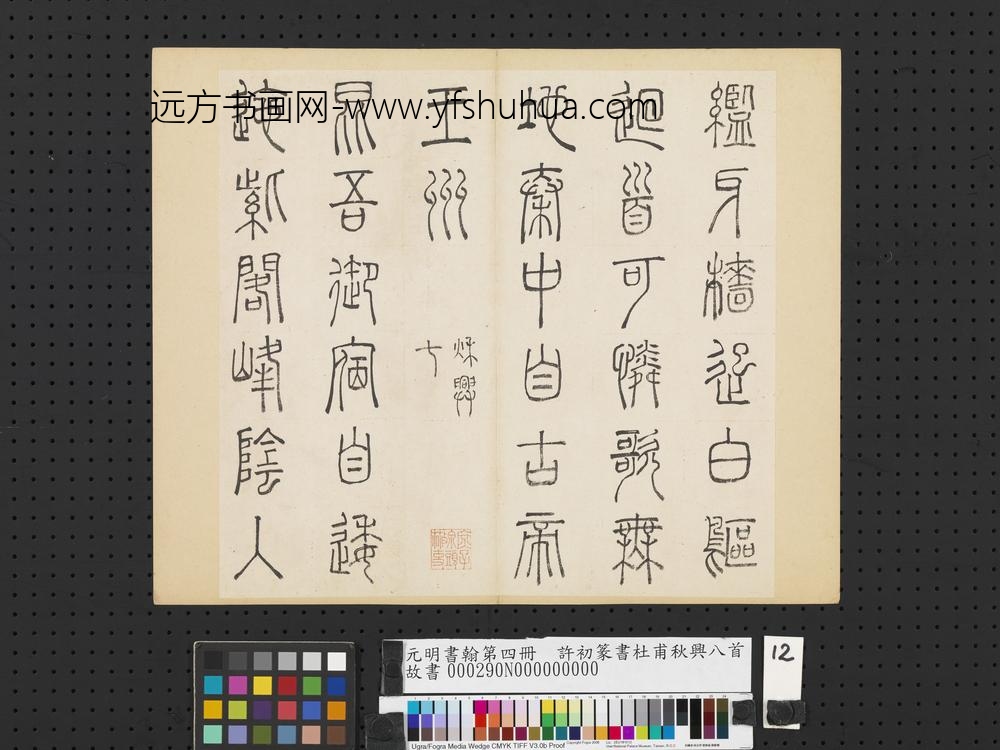 纜牙檣起白鷗
迴首可憐歌舞
地秦中自古帝
王州
秌興
七
昆吾御宿自逶
迤紫閣峰陰人
远方书画网-www.yfshuhua.com
元明書翰第四冊 許初篆書杜甫秋興八首
故書 000290N000000000
12
Ugra/Fogra Media Wedge CMYK TIFF V3.0b Proof